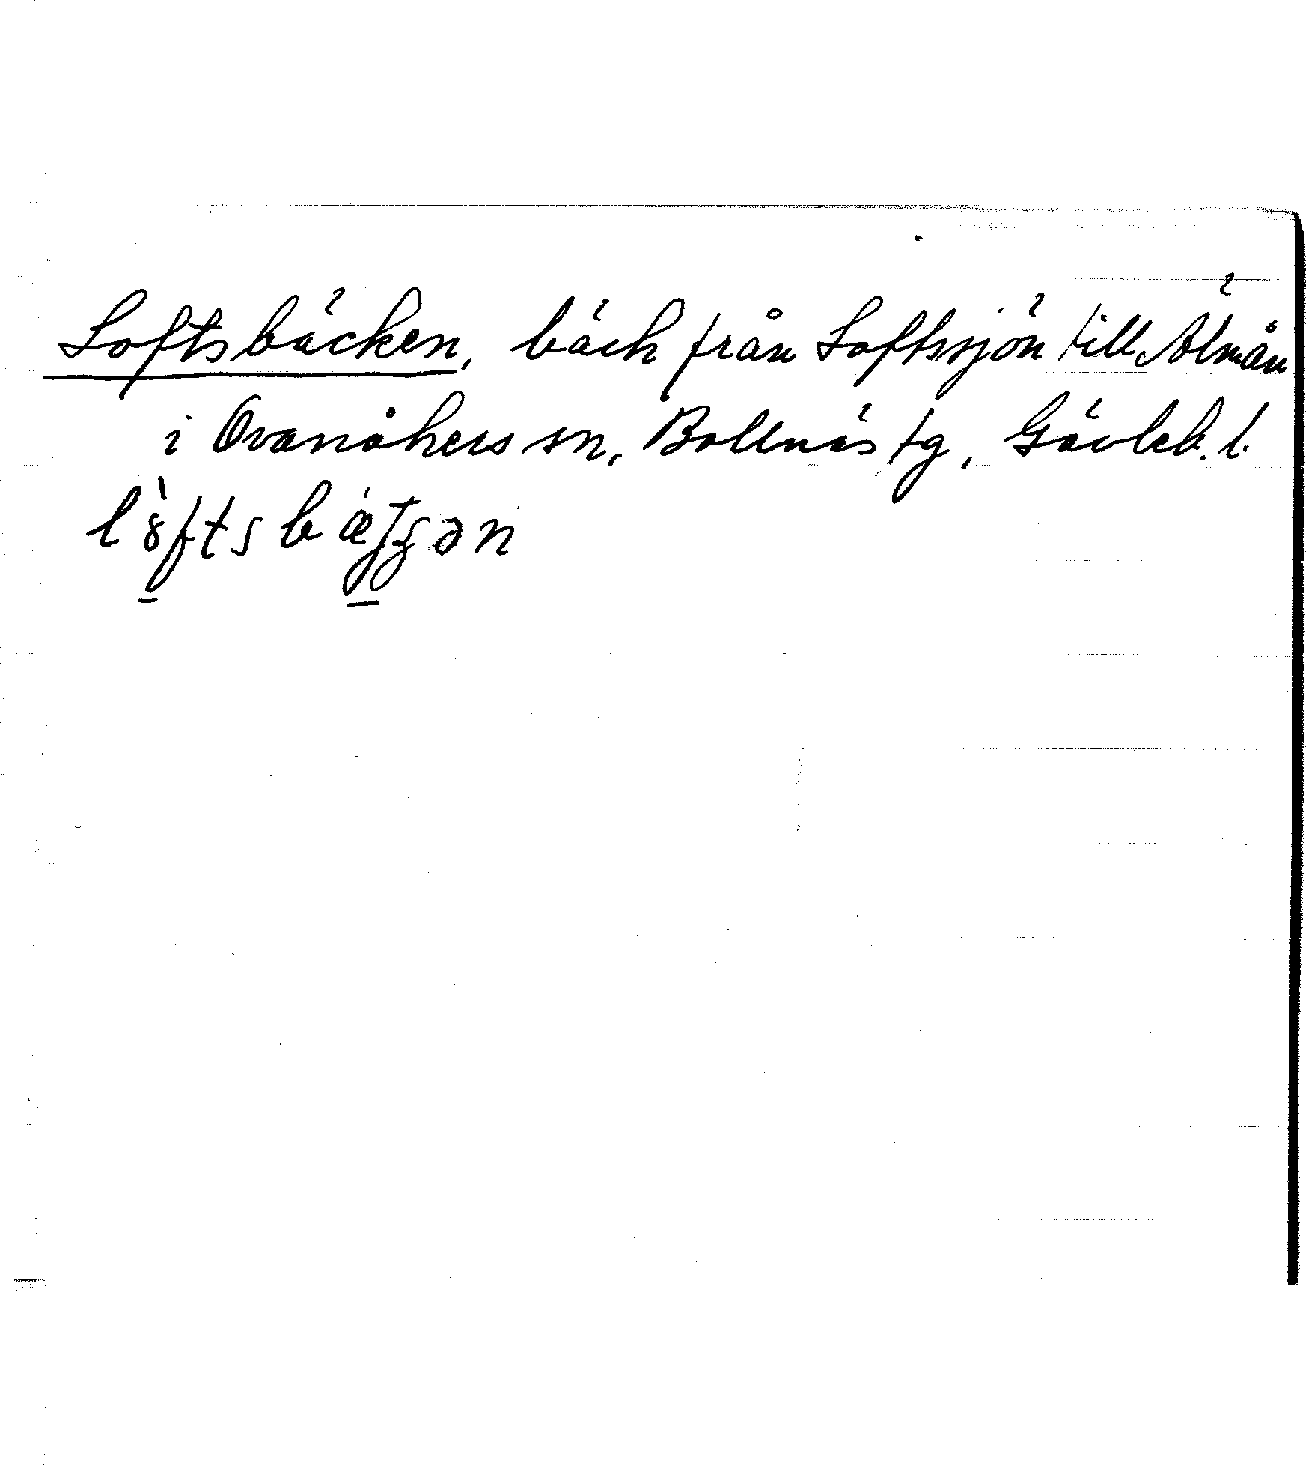 Loftsbäcken, bäck från Loftssjön till Älmån
i Ovanåkers sn, Bollnäs tg, Gävleb. l.